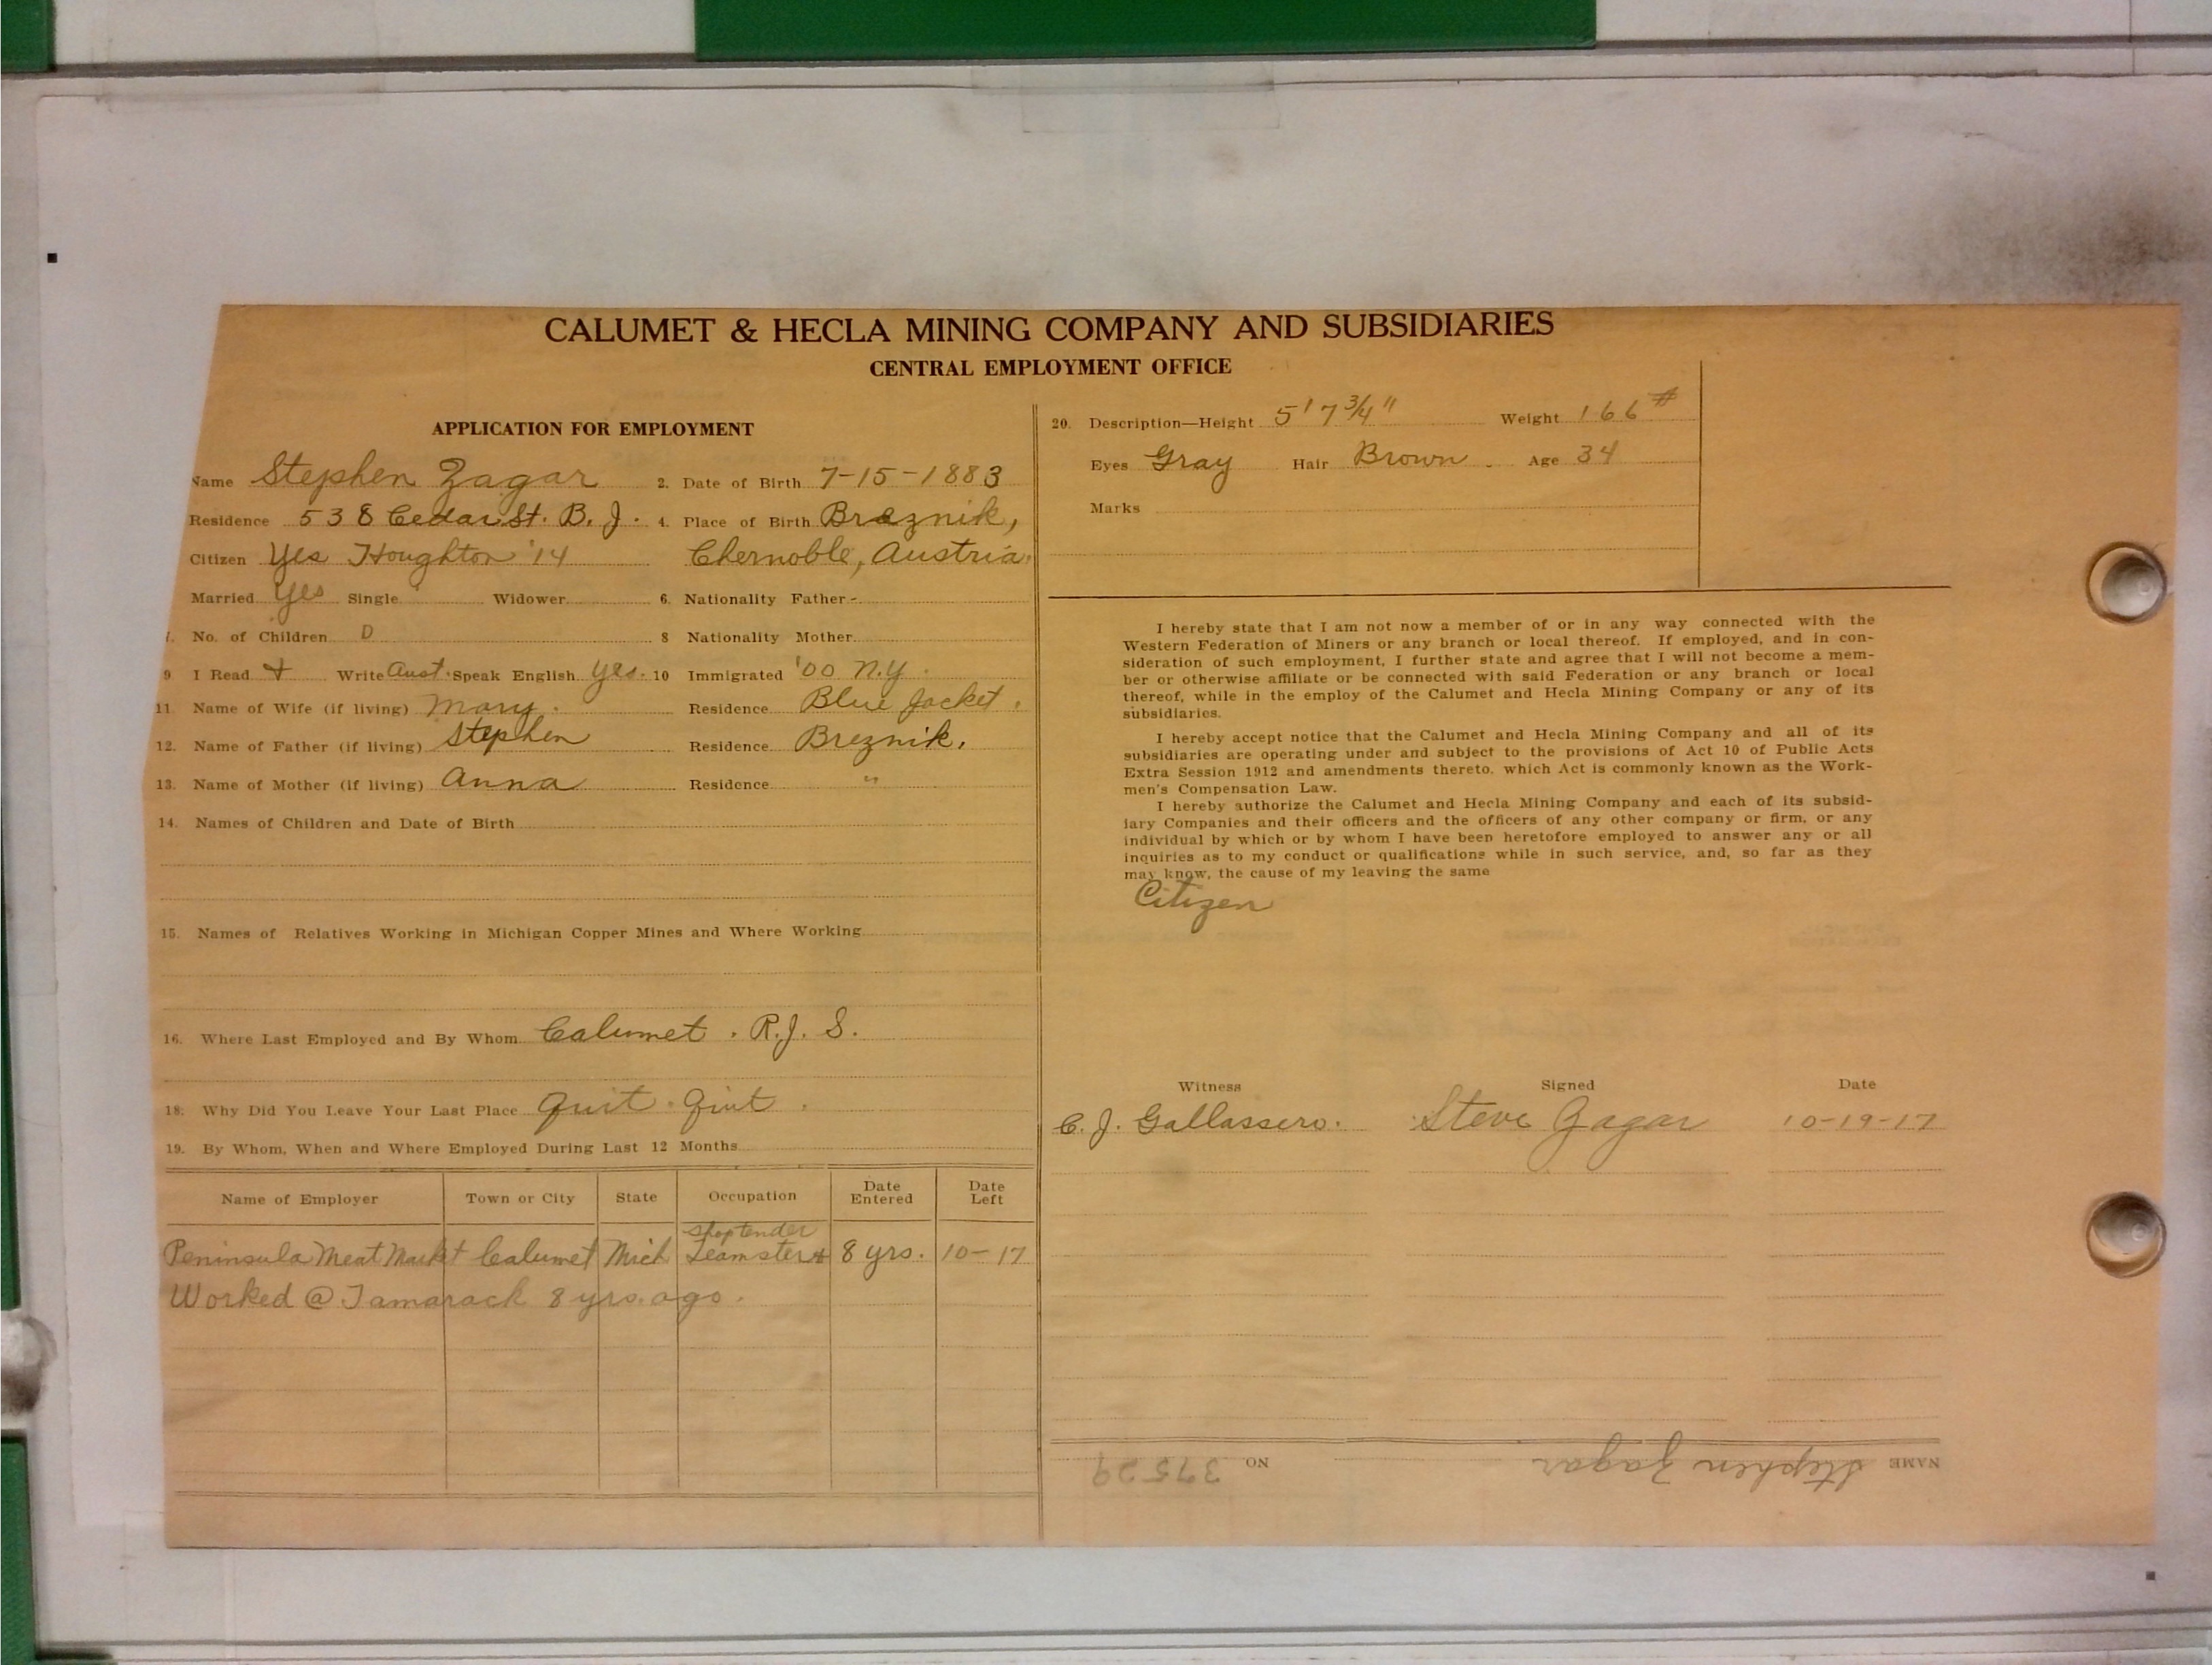 CALUMET & HECLA MINING COMPANY AND SUBSIDIARIES
CENTRAL EMPLOYMENT OFFICE
APPLICATION FOR EMPLOYMENT
Name Stephen Zagar 2. Date of Birth 7-15-1883
Residence 538 Cedar St. B. J. 4. Place of Birth Breznik,
Citizen Yes Houghton '14 Chernoble, Austria.
Married Yes Single Widower 6. Nationality Father -
7. No. of Children 0 8 Nationality Mother
9 I Read + Write Aust. Speak English Yes. 10 Immigrated '00 N.Y.
11. Name of Wife (if living) Mary. Residence Blue Jacket.
12. Name of Father (if living) Stephen Residence Breznik.
13. Name of Mother (if living) Anna Residence "
14. Names of Children and Date of Birth
15. Names of Relatives Working in Michigan Copper Mines and Where Working
16. Where Last Employed and By Whom Calumet. R.J. S.
18. Why Did You Leave Your Last Place Quit. Quit.
19. By Whom, When and Where Employed During Last 12 Months
Name of Employer Town or City State Occupation Date Entered Date Left
shoptender
Peninsula Meat Market Calumet Mich Teamster & 8 yrs. 10-17
Worked @ Tamarack 8 yrs. ago.
20. Description—Height 5' 7 3/4" Weight 166#
Eyes Gray Hair Brown. Age 34
Marks
I hereby state that I am not now a member of or in any way connected with the
Western Federation of Miners or any branch or local thereof. If employed, and in con-
sideration of such employment, I further state and agree that I will not become a mem-
ber or otherwise affiliate or be connected with said Federation or any branch or local
thereof, while in the employ of the Calumet and Hecla Mining Company or any of its
subsidiaries.
I hereby accept notice that the Calumet and Hecla Mining Company and all of its
subsidiaries are operating under and subject to the provisions of Act 10 of Public Acts
Extra Session 1912 and amendments thereto, which Act is commonly known as the Work-
men's Compensation Law.
I hereby authorize the Calumet and Hecla Mining Company and each of its subsid-
iary Companies and their officers and the officers of any other company or firm, or any
individual by which or by whom I have been heretofore employed to answer any or all
inquiries as to my conduct or qualifications while in such service, and, so far as they
may know, the cause of my leaving the same
Citizen
Witness Signed Date
C. J. Gallassero. Steve Zagar 10-19-17
NAME Stephen Zagar NO 39529